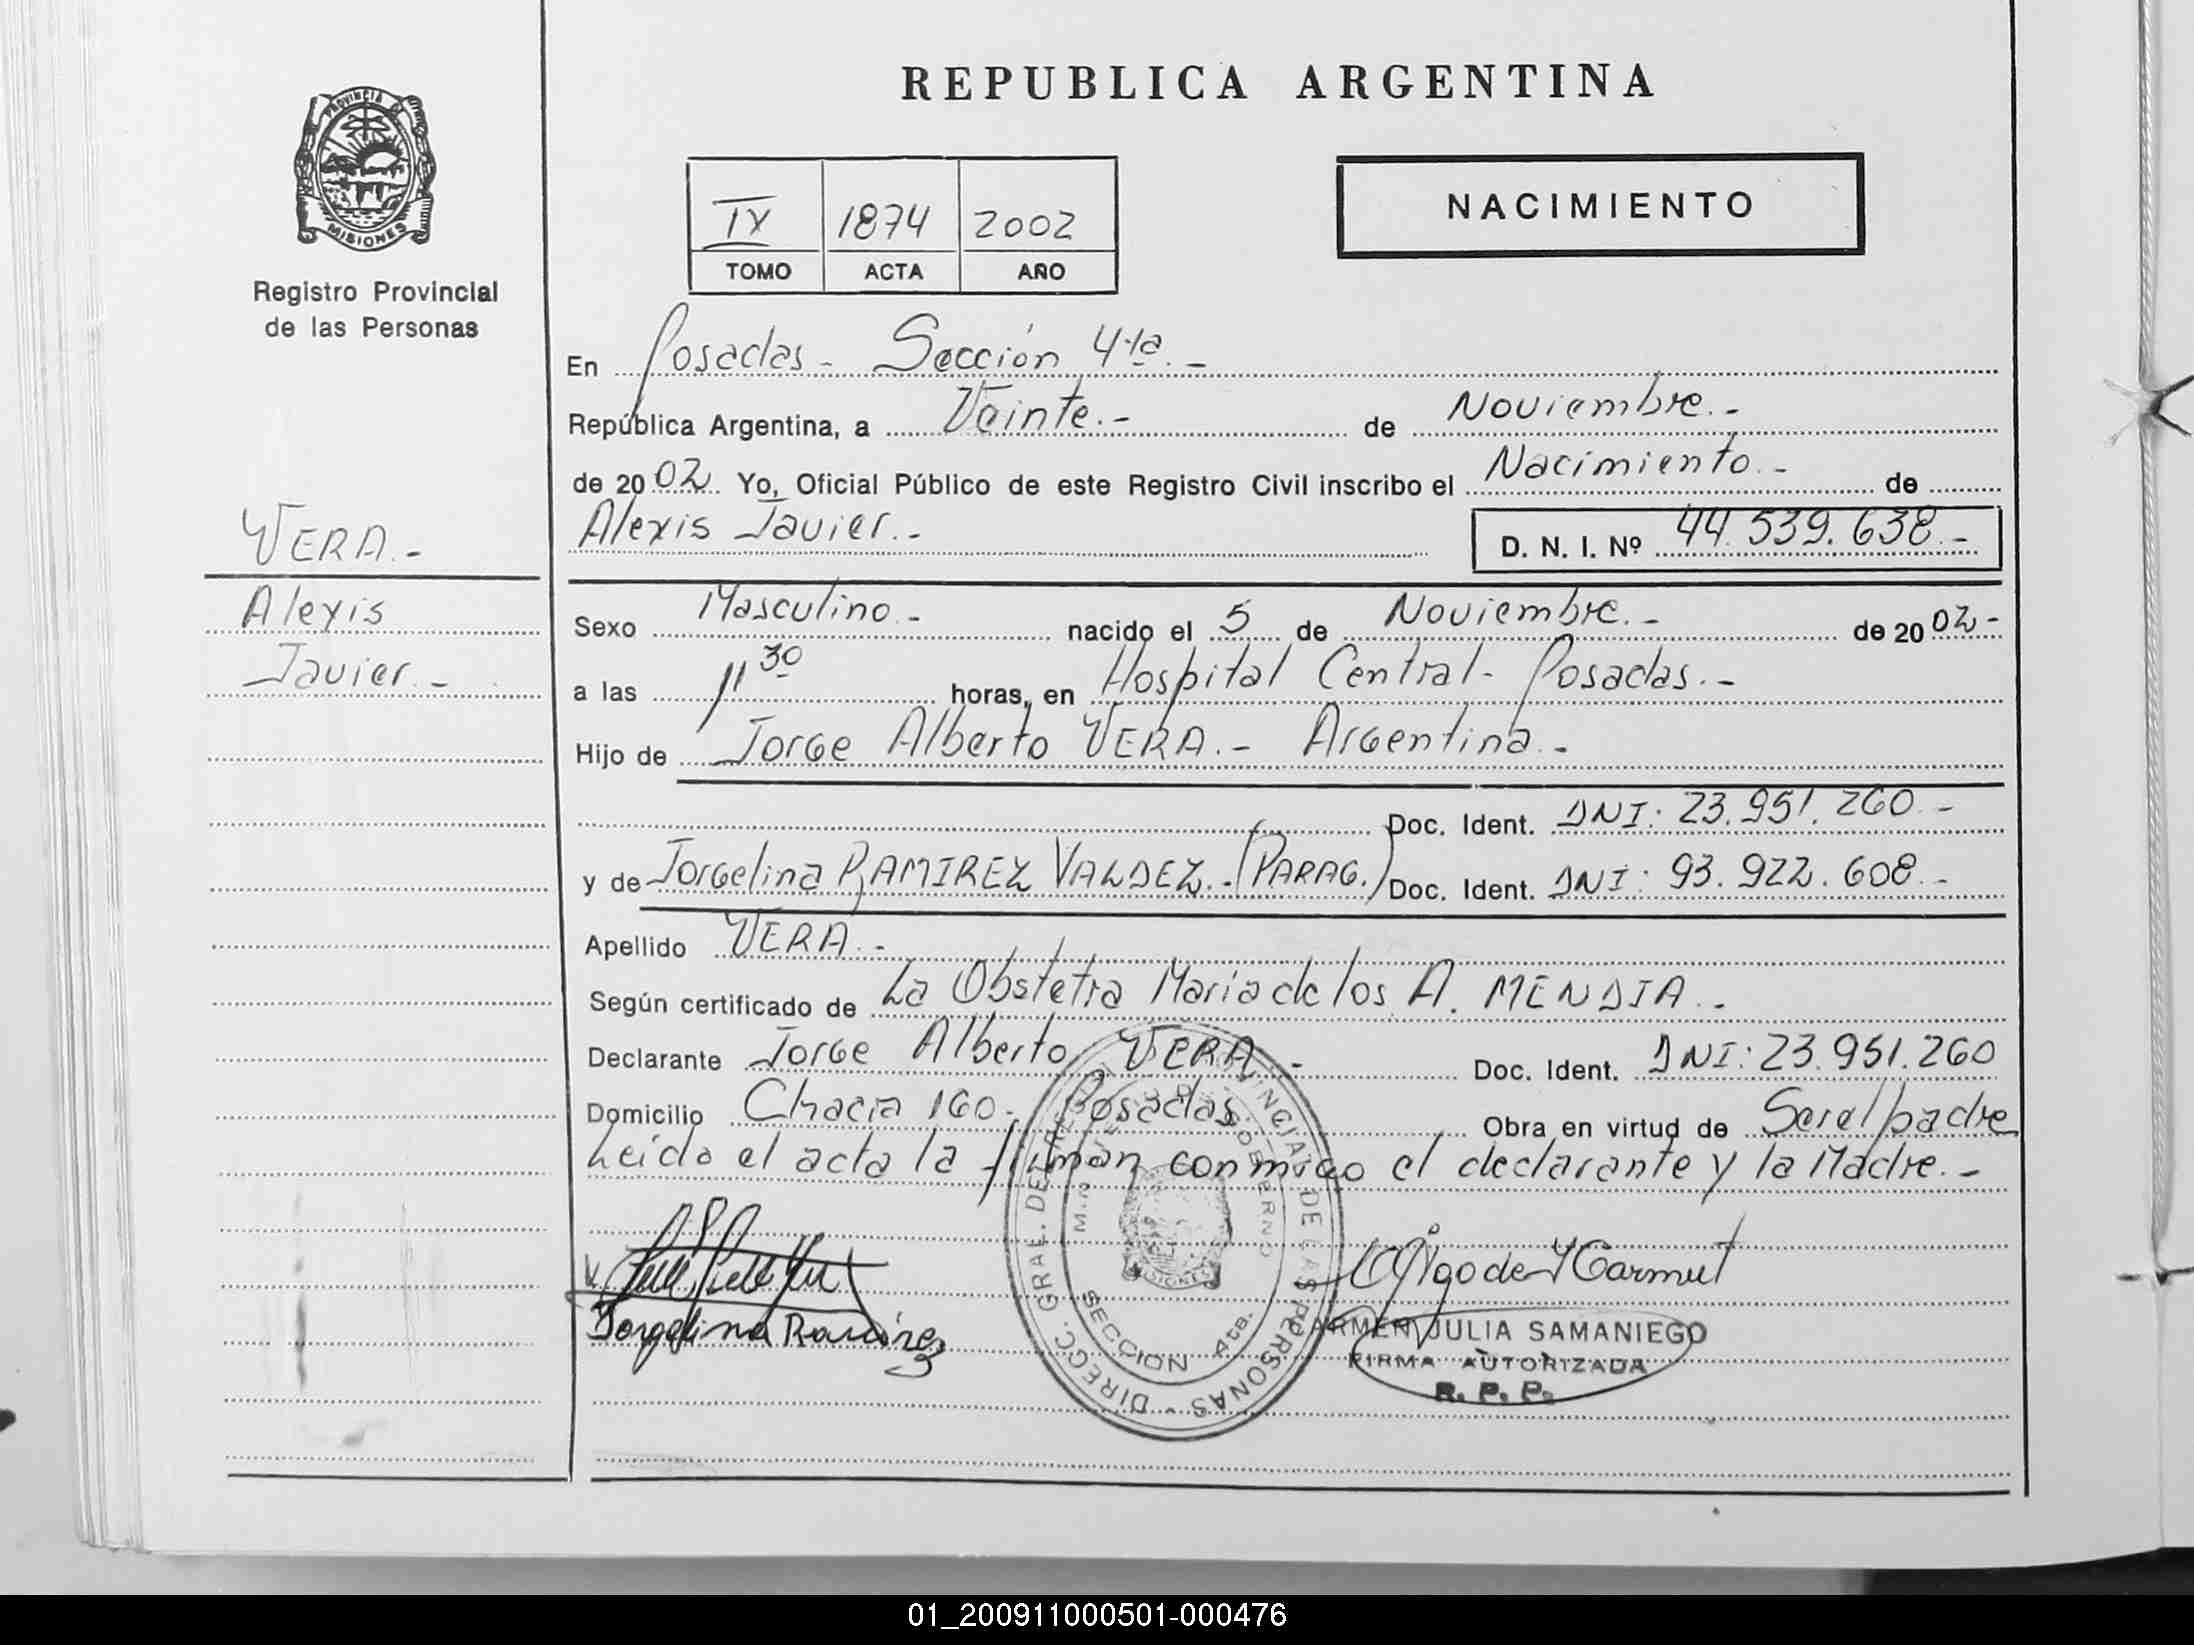 REPUBLICA ARGENTINA
PROVINCIA DE
MISIONES
Registro Provincial
de las Personas
IX 1874 2002
TOMO ACTA AÑO
NACIMIENTO
En Posadas - Sección 4ta.-
República Argentina, a Veinte.- de Noviembre.-
de 2002 Yo, Oficial Público de este Registro Civil inscribo el Nacimiento.- de
Alexis Javier.- D. N. I. Nº 44.539.638.-
VERA.-
Alexis
Javier.-
Sexo Masculino.- nacido el 5 de Noviembre.- de 2002-
a las 11 30 horas, en Hospital Central- Posadas.-
Hijo de Jorge Alberto VERA.- Argentina.-
Doc. Ident. DNI: 23.951.260.-
y de Jorgelina RAMIREZ VALDEZ.-(PARAG.) Doc. Ident. DNI: 93.922.608.-
Apellido VERA.-
Según certificado de La Obstetra Maria de los A. MENDIA.-
Declarante Jorge Alberto VERA.- Doc. Ident. DNI: 23.951.260
Domicilio Chacra 160.- Posadas Obra en virtud de Ser el padre
Leído el acta la firman conmigo el declarante y la Madre.-
Jorgelina Ramirez
DIRECC. GRAL. DEL REGISTRO PROVINCIAL DE LAS PERSONAS
GOBIERNO
MISIONES
SECCION 4ta.
CARMEN JULIA SAMANIEGO
FIRMA AUTORIZADA
R. P. P.
01_200911000501-000476